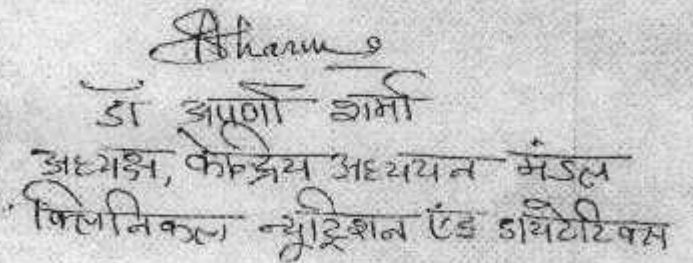 डॉ अपर्णा शर्मा
अध्यक्ष, केन्द्रिय अध्ययन मंडल
क्लिनिकल न्यूट्रिशन एंड डायटेटिक्स